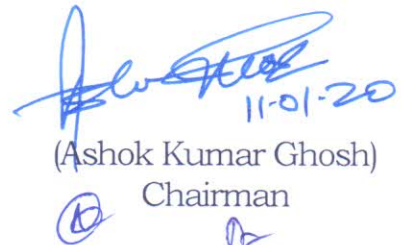 11-01-20
(Ashok Kumar Ghosh)
Chairman